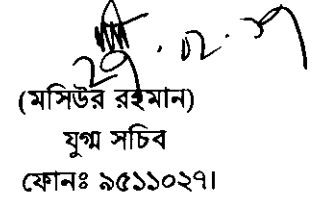 (মসিউর রহমান)
যুগ্ম সচিব
ফোনঃ ৯৫১১০২৭।